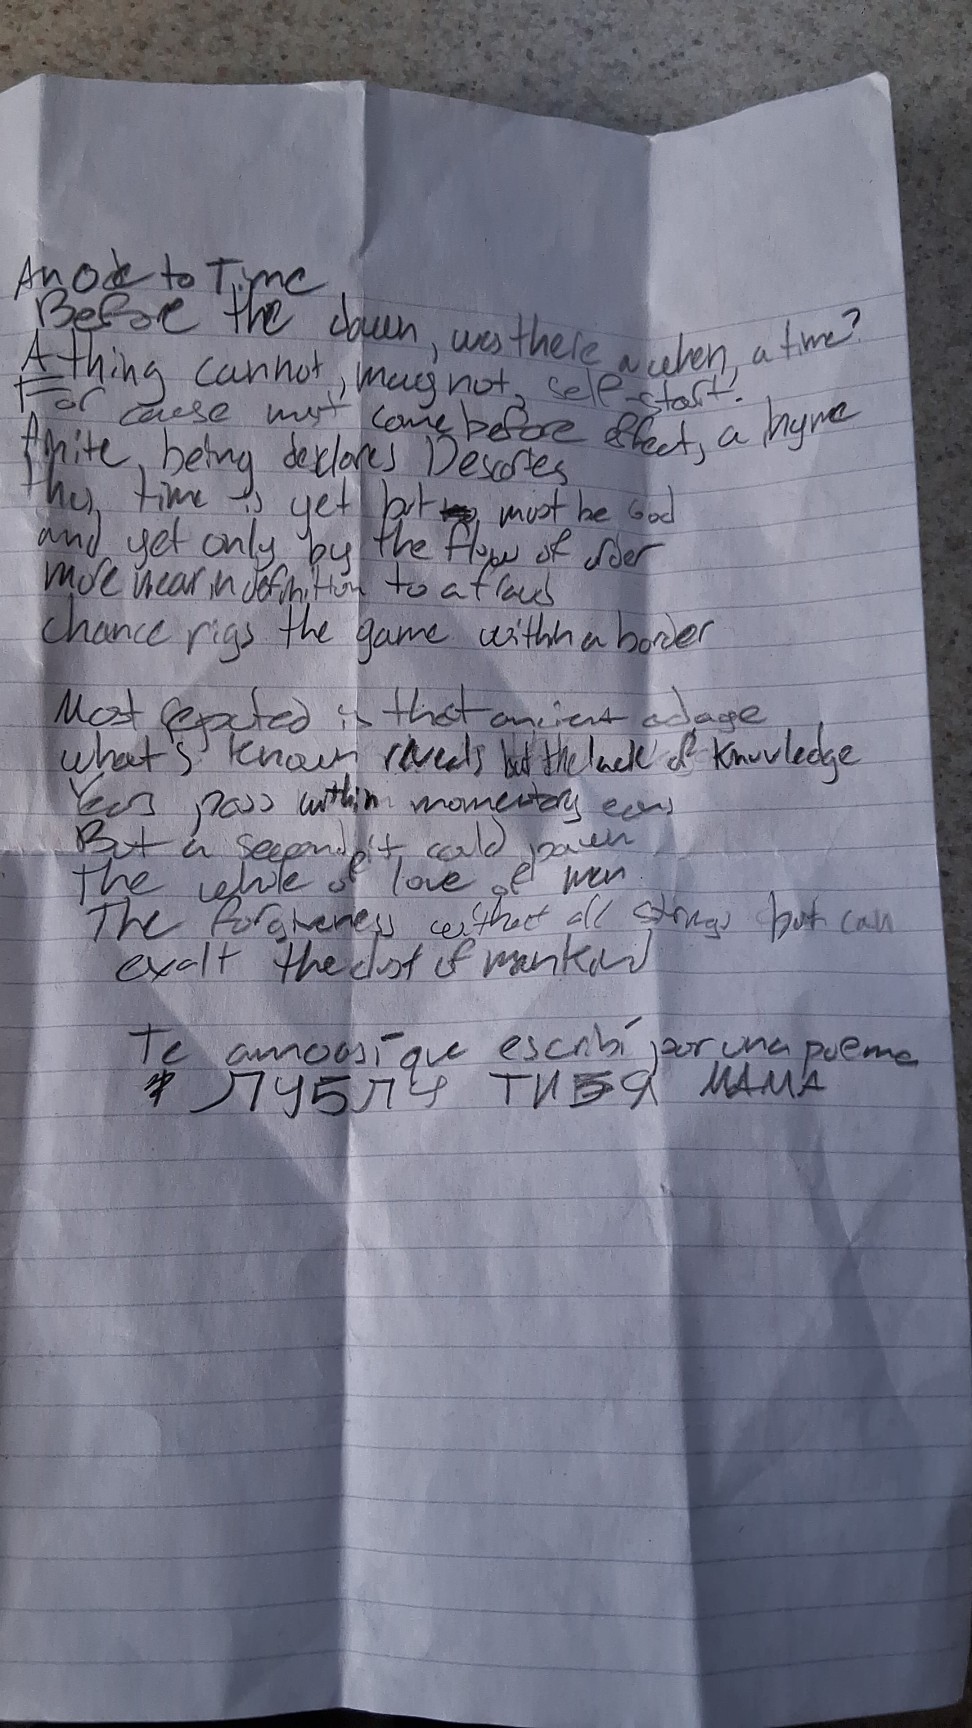 An Ode to Time
Before the dawn, was there a when, a time?
A thing cannot, may not, self-start.
For cause must come before effect, a hyme
finite, being declares Descartes
thus time is yet but must be God
and yet only by the flow of order
more near in definition to a fraud
Chance rigs the game within a border
Most reputed is that ancient adage
what's known reveals but the lack of knowledge
Years pass within momentary eons
But a second it could pawn
The whole of love of men
The forgiveness without all strings but can
exalt the dust of mankind
Te amo así que escribí por una pueme
* ЛУБЛУ ТИБЯ МАМА